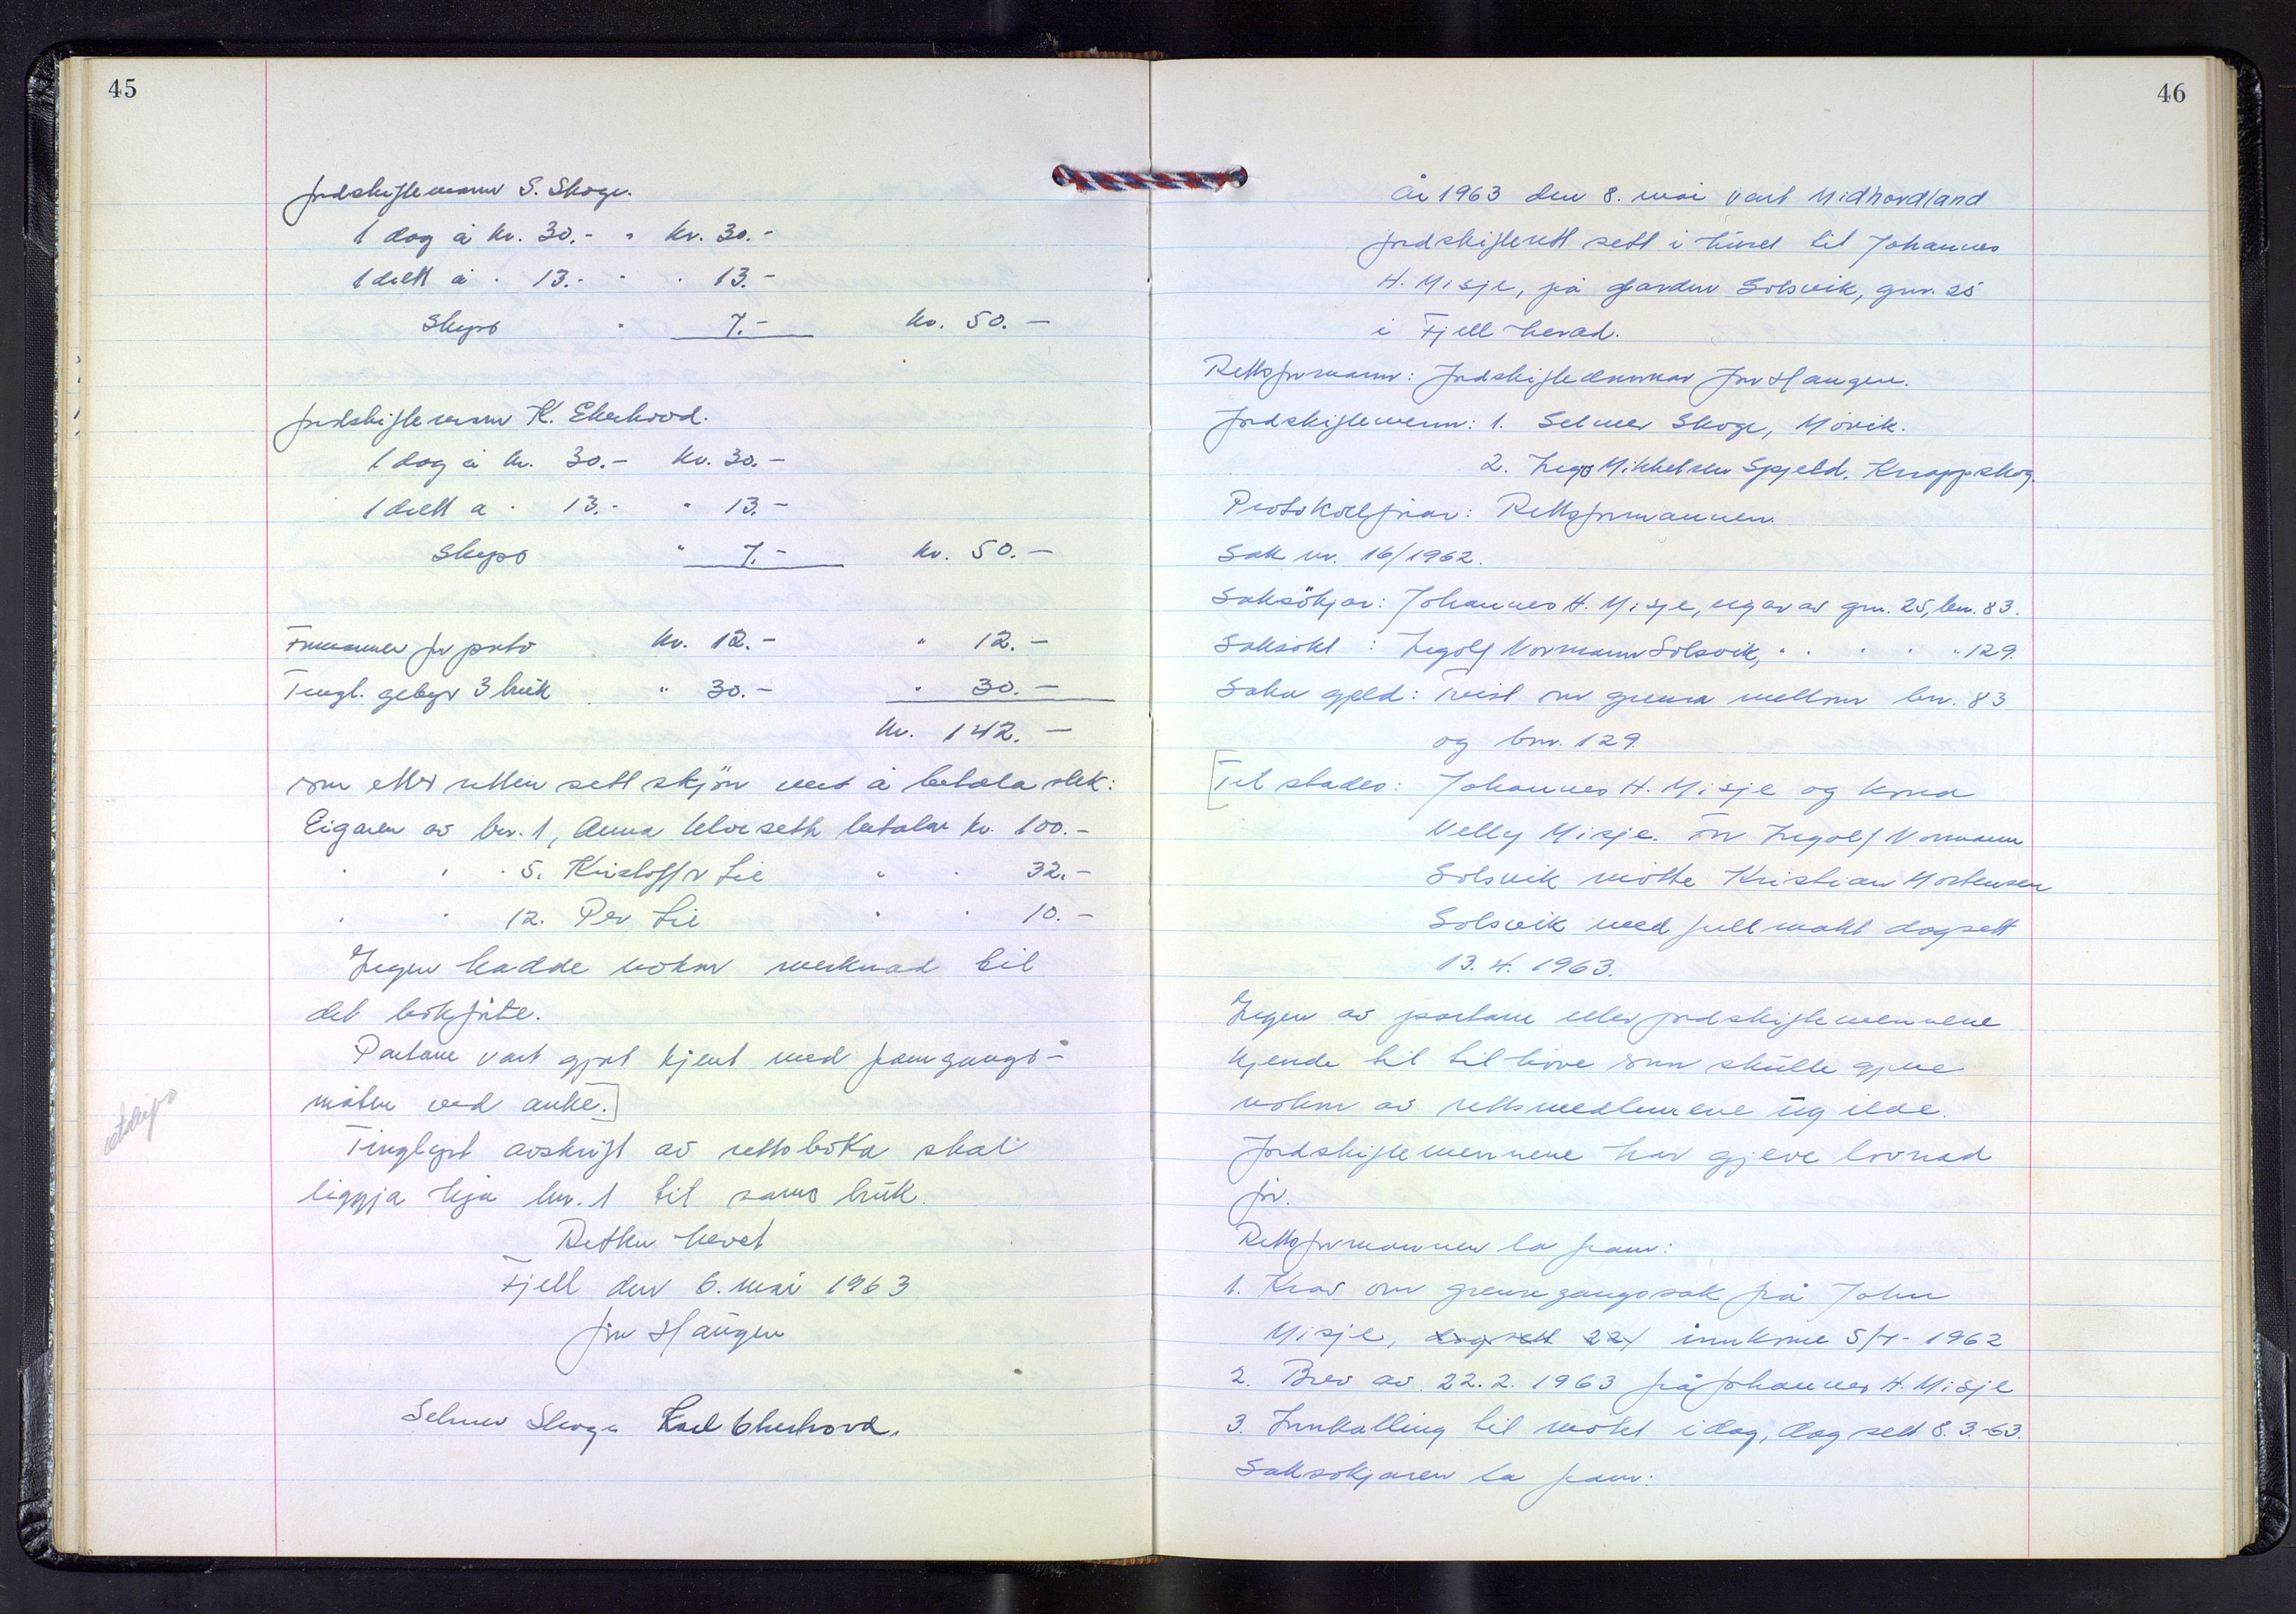 45
Jordskiftemann S. Skoge.
1 dag à kr. 30.- " kr. 30.-
1 diett à " 13.- " " 13.-
Skyss " 7.- kr. 50.-
Jordskiftemann K. Ekerhovd.
1 dag à kr. 30.- kr. 30.-
1 diett a " 13.- " 13.-
Skyss " 7.- kr. 50.-
Formannen for proto kr. 12.- " 12.-
Tingl. gebyr 3 bruk " 30.- " 30.-
kr. 142.-
som etter retten sett skjön vert å betala slik:
Eigaren av bnr. 1, Anna Ulveseth betalar kr. 100.-
" " " 5. Kristoffer Lie " " 32.-
" " 12. Per Lie " " 10.-
Ingen hadde nokon merknad til
det bokförte.
Partane vart gjort kjent med framgangs-
måten ved anke.]
Tinglyst avskrift av rettsboka skal
liggja hjå bnr. 1 til sams bruk.
Retten hevet
Fjell den 6. mai 1963
Jon Haugen
Selmer Skoge Karl Ekerhovd.
46
År 1963 den 8. mai vart Midhordland
jordskifterett sett i huset til Johannes
H. Misje, på garden Solsvik, gnr. 25
i Fjell herad.
Rettsformann: Jordskiftedommar Jon Haugen.
Jordskiftemenn: 1. Selmer Skoge, Mövik.
2. Inga Mikkelsen Spjeld, Knappskog.
Protokollförar: Rettsformannen.
Sak nr. 16/1962.
Saksökjar: Johannes H. Misje, eigar av gnr. 25, bnr. 83.
Saksökt : Ingolf Normann Solsvik, " " " " " 129.
Saka gjeld: Tvist om grensa mellom bnr. 83
og bnr. 129.
[Til stades: Johannes H. Misje og kona
Nelly Misje. For Ingolf Normann
Solsvik mötte Kristian Mortensen
Solsvik med fullmakt dagsett
13.4.1963.
Ingen av partane eller jordskiftemennene
kjende til tilhöve som skulle gjere
nokon av rettsmedlemene ugilde.
Jordskiftemennene har gjeve lovnad
för.
Rettsformannen la fram:
1. Krav om grensegangssak frå John
Misje, dagsett 22/ innkome 5/7-1962
2. Brev av 22.2.1963 frå Johannes H. Misje
3. Innkalling til mötet i dag, dagsett 8.3.-63.
Saksökjaren la fram: